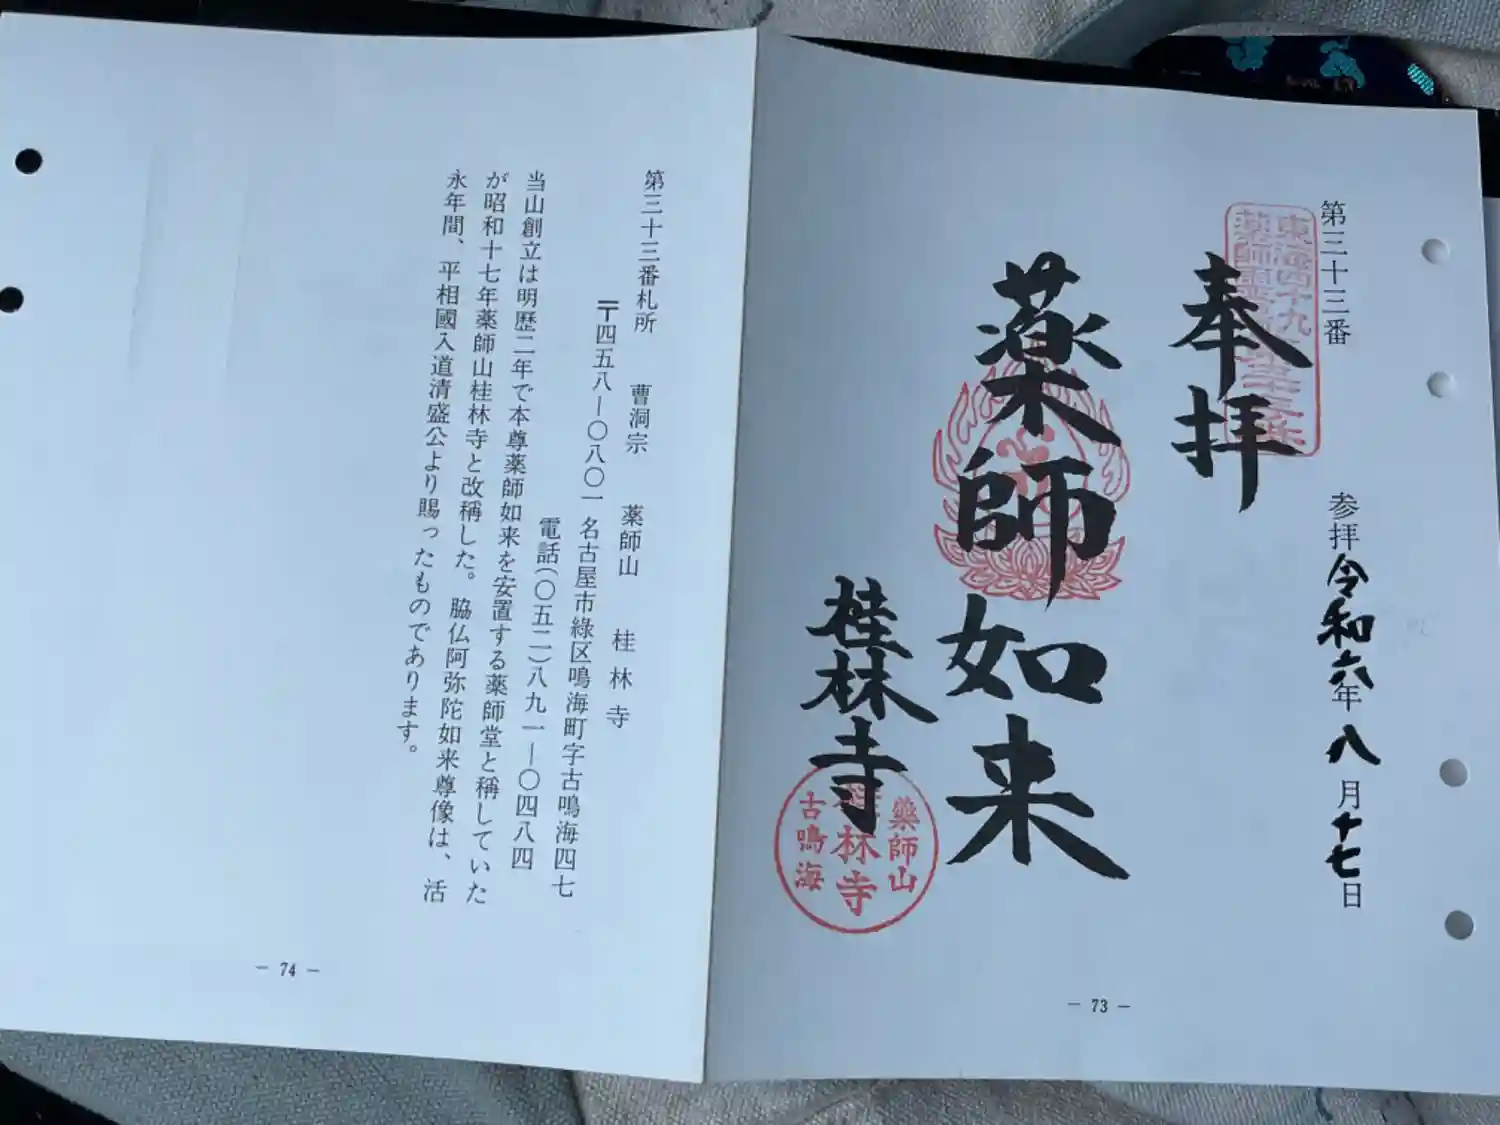 第三十三番
参拝 令和六年八月十七日
東海四十九
薬師霊
奉拝
薬師如来
桂林寺
薬師山
林寺
古鳴海
－ 73 －
第三十三番札所 曹洞宗 薬師山 桂林寺
〒四五八－〇八〇一 名古屋市緑区鳴海町字古鳴海四七
電話(〇五二)八九一－〇四八四
当山創立は明歴二年で本尊薬師如来を安置する薬師堂と稱していた
が昭和十七年薬師山桂林寺と改稱した。脇仏阿弥陀如来尊像は、活
永年間、平相國入道清盛公より賜ったものであります。
－ 74 －